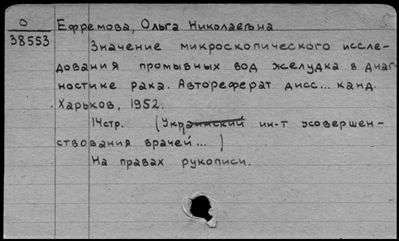 О
38553
Ефремова, Ольга Николаевна
Значение микроскопического иссле-
дования промывных вод желудка в диаг-
ностике рака. Автореферат дисс... канд.
Харьков, 1952.
14стр. (Украинский ин-т усовершен-
ствования врачей...)
На правах рукописи.